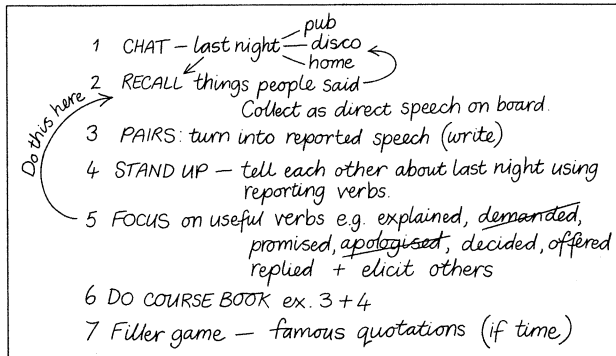 pub
1 CHAT – last night – disco
home
2 RECALL things people said
Collect as direct speech on board.
Do this here
3 PAIRS: turn into reported speech (write)
4 STAND UP – tell each other about last night using
reporting verbs.
5 FOCUS on useful verbs e.g. explained, demanded,
promised, apologised, decided, offered
replied + elicit others
6 DO COURSE BOOK ex. 3 + 4
7 Filler game – famous quotations (if time)